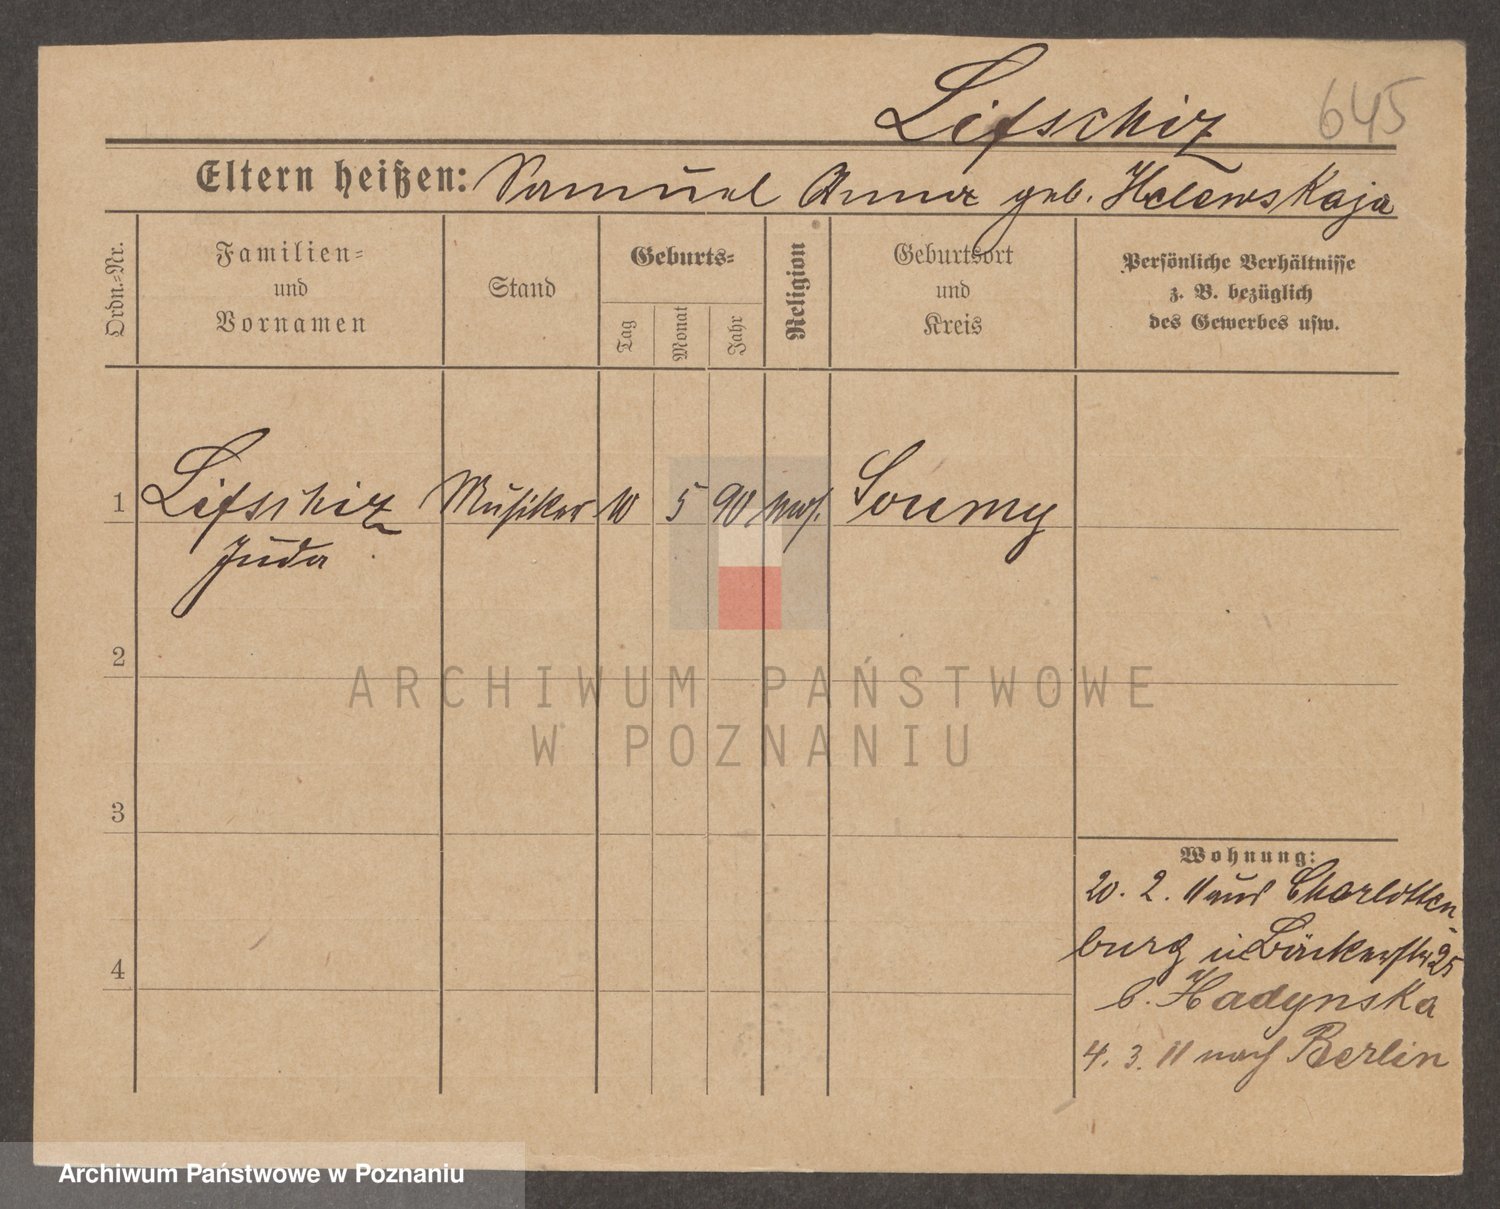 Lifschiz 645
Eltern heißen: Samuel Anna geb. Helewskaja
Ordn.-Nr.
Familien-
und
Vornamen
Stand
Geburts-
Tag
Monat
Jahr
Religion
Geburtsort
und
Kreis
Persönliche Verhältnisse
z. B. bezüglich
des Gewerbes usw.
1 Lifschiz Musiker 10 5 90 mos. Soumy
Juda
2
ARCHIWUM PAŃSTWOWE
W POZNANIU
3
Wohnung:
20. 2. 11 aus Charlotten
burg in Bäckerstr 25
b. Hadynska
4
4. 3. 11 nach Berlin
Archiwum Państwowe w Poznaniu